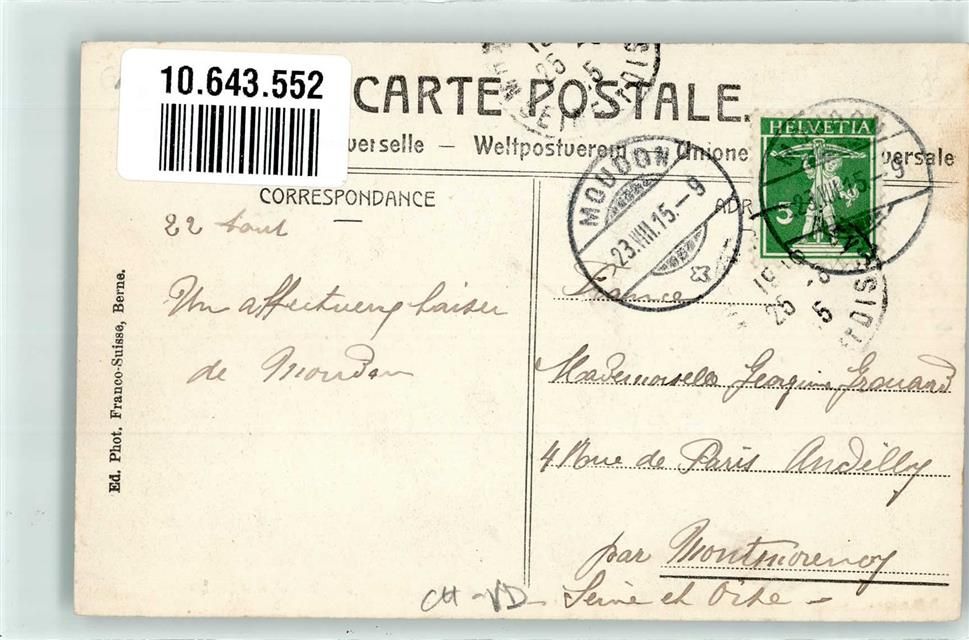 10.643.552
CARTE POSTALE.
verselle — Weltpostverein — Unione versale
HELVETIA
5
MOUDON
23.VIII.15.–9
CORRESPONDANCE
ADR
22 Aout
Un affectueux baiser
de Moudon
France
Mademoiselle Georgine Grouard
4 Rue de Paris Andilly
par Montmorency
Seine et Oise –
CH – VD
Ed. Phot. Franco-Suisse, Berne.